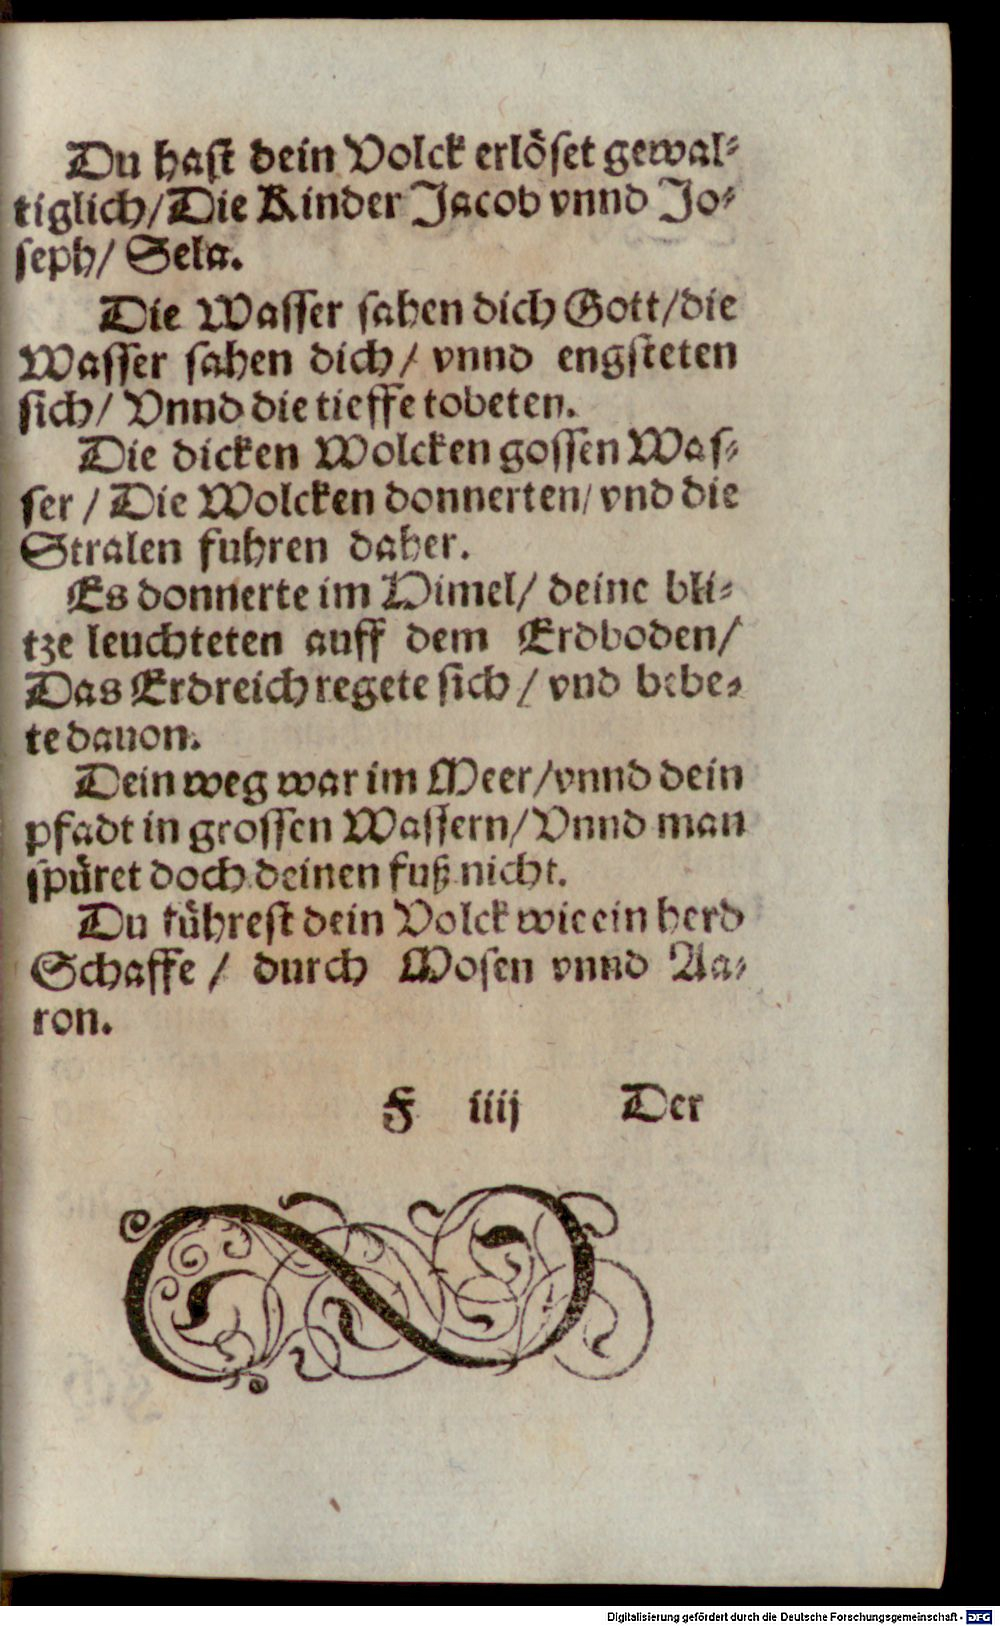 Du hast dein Volck erlöset gewal⸗
tiglich/Die Kinder Jacob vnnd Jo⸗
seph/ Sela.
Die Wasser sahen dich Gott/die
Wasser sahen dich/ vnnd engsteten
sich/ Vnnd die tieffe tobeten.
Die dicken Wolcken gossen Was⸗
ser / Die Wolcken donnerten/ vnd die
Stralen fuhren daher.
Es donnerte im Himel/ deine bli⸗
tze leuchteten auff dem Erdboden/
Das Erdreich regete sich / vnd bebe⸗
te dauon.
Dein weg war im Meer/vnnd dein
pfadt in grossen Wassern/Vnnd man
spüret doch deinen fuß nicht.
Du führest dein Volck wie ein herd
Schaffe / durch Mosen vnnd Aa⸗
ron.
F iiij Der
Digitalisierung gefördert durch die Deutsche Forschungsgemeinschaft - DFG